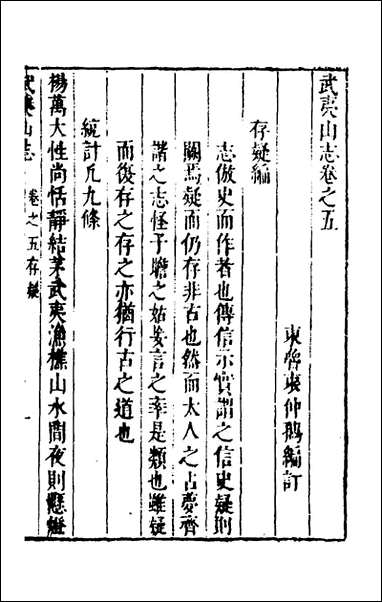 武夷山志卷之五
東魯衷仲孺編訂
存疑編
志倣史而作者也傳信示實謂之信史疑則
闕焉疑而仍存非古也然而太人之占夢齊
諧之志怪子瞻之姑妄言之率是類也雖疑
而復存之存之亦猶行古之道也
統計凡九條
楊萬大性尚恬靜結茅武夷漁樵山水間夜則懸燈
武夷山志 卷之五存疑 一